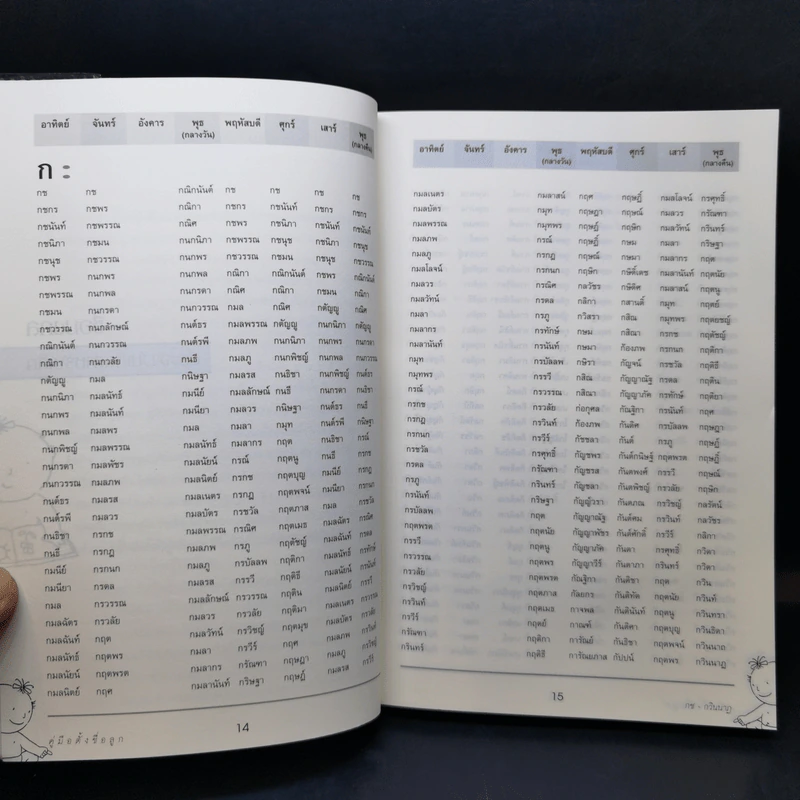 อาทิตย์ จันทร์ อังคาร พุธ (กลางวัน) พฤหัสบดี ศุกร์ เสาร์ พุธ (กลางคืน)
ก ะ
กช กช กณิกนันต์ กช กช กช กช
กชกร กชพร กณิกา กชกร กชนันท์ กชกร กชกร
กชนันท์ กชพรรณ กณิศ กชพร กชนิภา กชนันท์ กชนันท์
กชนิภา กชมน กนกนิภา กชพรรณ กชนุช กชนิภา กชนิภา
กชนุช กชวรรณ กนกพร กชวรรณ กชมน กชนุช กชนุช
กชพร กนกพล กนกพล กณิกา กณิกนันต์ กชพร กณิกนันต์
กชพรรณ กนกพร กนกรดา กณิศ กณิกา กชมน กณิกา
กชมน กนกรดา กนกวรรณ กมล กณิศ กตัญญู กณิศ
กชวรรณ กนกลักษณ์ กนต์ธร กมลพรรณ กตัญญู กนกนิภา กตัญญู
กณิกนันต์ กนกวรรณ กนต์รพี กมลภพ กนกนิภา กนกพร กนกนิภา
กณิกา กนกวลัย กนธี กมลภู กนกพิชญ์ กนกพล กนกวรรณ
กตัญญู กมล กนิษฐา กมลรส กนธิชา กนกพิชญ์ กนต์ธร
กนกนิภา กมลนัทธ์ กมนีย์ กมลลักษณ์ กนธี กนกรดา กนธิชา
กนกพร กมลนันท์ กมนียา กมลวร กนิษฐา กนต์ธร กนธี
กนกพล กมลพร กมล กมลา กมุท กนต์รพี กนิษฐา
กนกพิชญ์ กมลพรรณ กมลนัทธ์ กมลากร กฤต กนธิชา กรณ์
กนกรดา กมลพัชร กมลนัยน์ กรณ์ กฤตนู กนธี กรกช
กนกวรรณ กมลภพ กมลนิตย์ กรกช กฤตบุญ กมนีย์ กรกฎ
กนต์ธร กมลรส กมลเนตร กรกฎ กฤตพจน์ กมนียา กรกนก
กนต์รพี กมลวร กมลบัตร กรชวัล กฤตภาส กมล กรชวัล
กนธิชา กรกช กมลพรรณ กรณิศ กฤตเมธ กมลฉัตร กรณิศ
กนธี กรกฎ กมลภพ กรภู กฤตัชญ์ กมลนันท์ กรณ์
กมนีย์ กรกนก กมลภู กรบัลลพ กฤติกา กมลนัทธ์ กรนันท์
กมนียา กรดล กมลรส กรรวี กฤติธี กมลนัยน์ กรภู
กมล กรวรรณ กมลลักษณ์ กรวรรณ กฤติน กมลนิตย์ กรรวี
กมลฉัตร กรวลัย กมลวร กรวลัย กฤติมา กมลเนตร กรวรรณ
กมลนันท์ กฤต กมลวัทน์ กรวิชญ์ กฤตมุข กมลบัตร กรวลัย
กมลนัทธ์ กฤตพร กมลา กรวีร์ กฤศ กมลภพ กรวินท์
กมลนัยน์ กฤตพรต กมลากร กรัณฑา กฤษฎา กมลภู กรวิชญ์
กมลนิตย์ กฤศ กมลานันท์ กริษฐา กฤษฏิ์ กมลรส กรวีร์
14
คู่มือตั้งชื่อลูก
อาทิตย์ จันทร์ อังคาร พุธ (กลางวัน) พฤหัสบดี ศุกร์ เสาร์ พุธ (กลางคืน)
กมลเนตร กมลาสน์ กฤศ กฤษฏิ์ กมลโลจน์ กรศุทธิ์
กมลบัตร กมุท กฤษฎา กฤษณ์ กมลวร กรัณฑา
กมลพรรณ กมุทพร กฤษฏิ์ กฤษิก กมลวัทน์ กรินทร์
กมลภพ กรณ์ กฤษฎิ์ กษม กมลา กริษฐา
กมลภู กรกฎ กฤษณ์ กษมา กมลากร กฤต
กมลโลจน์ กรกนก กฤษิก กษิดิ์เดช กมลานันท์ กฤตนัย
กมลวร กรณิศ กลวัชร กษิดิศ กมลาสน์ กฤตนู
กมลวัทน์ กรดล กสิกา กสานติ์ กมุท กฤตย์
กมลา กรภู กวิสรา กสิณ กมุทพร กฤตยชญ์
กมลากร กรทักษ์ กษม กสิณา กรกช กฤตัชญ์
กมลานันท์ กรนันท์ กษมา ก้องภพ กรกนก กฤติกา
กมุท กรบัลลพ กษิรา กัญจน์ กรชวัล กฤติธี
กมุทพร กรรวี กสิณ กัญญาณัฐ กรดล กฤติน
กรณ์ กรวรรณ กสิณา กัญญาภัค กรทักษ์ กฤติยา
กรกช กรวลัย ก่อกุศล กัณฐิกา กรนันท์ กฤศ
กรกฎ กรวินท์ ก้องภพ กันติศ กรบัลลพ กฤษฎา
กรกนก กรวีร์ กัชชลา กันต์ กรภู กฤษฎิ์
กรชวัล กรศุทธิ์ กัญชพร กันต์กนิษฐ์ กรบัลลพ กฤษฏิ์
กรดล กรัณฑา กัญชรส กันตพงศ์ กรรวี กฤษณ์
กรภู กรินทร์ กัญชลา กันตพิชญ์ กรวลัย กฤษิก
กรนันท์ กริษฐา กัญญ์วรา กันตภณ กรวิชญ์ กลรัตน์
กรบัลลพ กฤต กัญญาณัฐ กันต์คม กรวินท์ กลวัชร
กฤตพรต กฤตนัย กัญญาพัชร กันต์ศักดิ์ กรวีร์ กสิกา
กรรวี กฤตนู กัญญาภัค กันตา กรศุทธิ์ กวิตา
กรวรรณ กฤตพร กัญญาวีร์ กันตาภา กรินทร์ กวิดา
กรวลัย กฤตพรต กัณฐิกา กันติชา กฤต กวิน
กรวิชญ์ กฤตภาส กัลยกร กันติทัต กฤตนัย กวินท์
กรวินท์ กฤตเมธ กาจพล กันตินันท์ กฤตนู กวินทรา
กรวีร์ กฤตย์ กาญณ์ กันติศา กฤตบุญ กวินธิดา
กรัณฑา กฤติกา การัณย์ กันธิชา กฤตพจน์ กวินนาถ
กรินทร์ กฤติธี การัณยภาส กัปปน์ กฤตพร กวินนาฏ
15
กช - กวินนาฏ